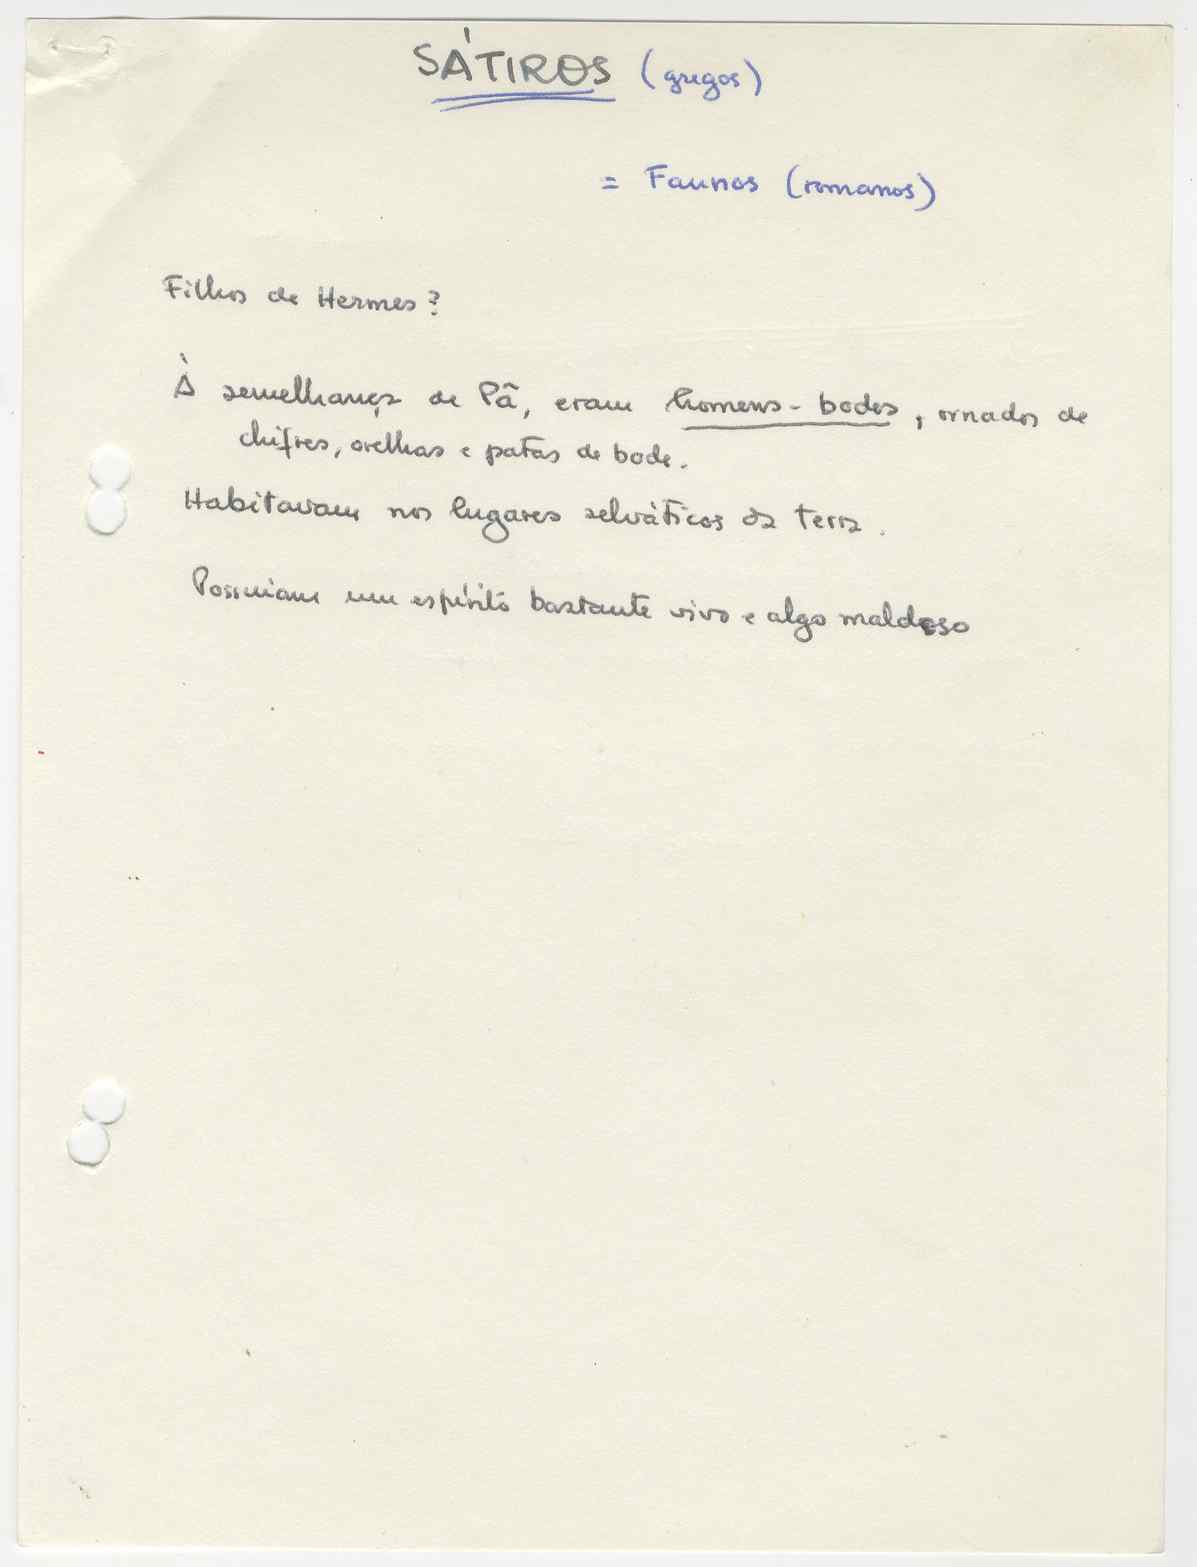 SÁTIROS (gregos)
= Faunos (romanos)
Filhos de Hermes?
À semelhança de Pã, eram homens-bodes, ornados de
chifres, orelhas e patas de bode.
Habitavam nos lugares selváticos da terra.
Possuiam um espírito bastante vivo e algo maldoso